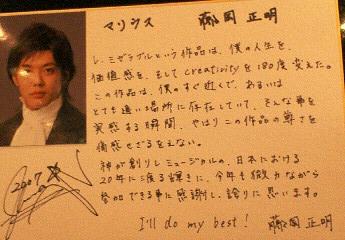 マリウス 藤岡 正明
レ・ミゼラブルという作品は、僕の人生を、
価値感を、そしてcreativityを180度変えた。
この作品は、僕のすぐ近くで、あるいは
とても遠い場所に存在していて、そんな事を
実感する瞬間、やはりこの作品の尊さを
痛感せざるをえない。
神が創りしミュージカルの、日本における
20年に渡る輝きに、今年も微力ながら
参加できる事に感謝し、誇りに思います。
I'll do my best! 藤岡 正明
2007